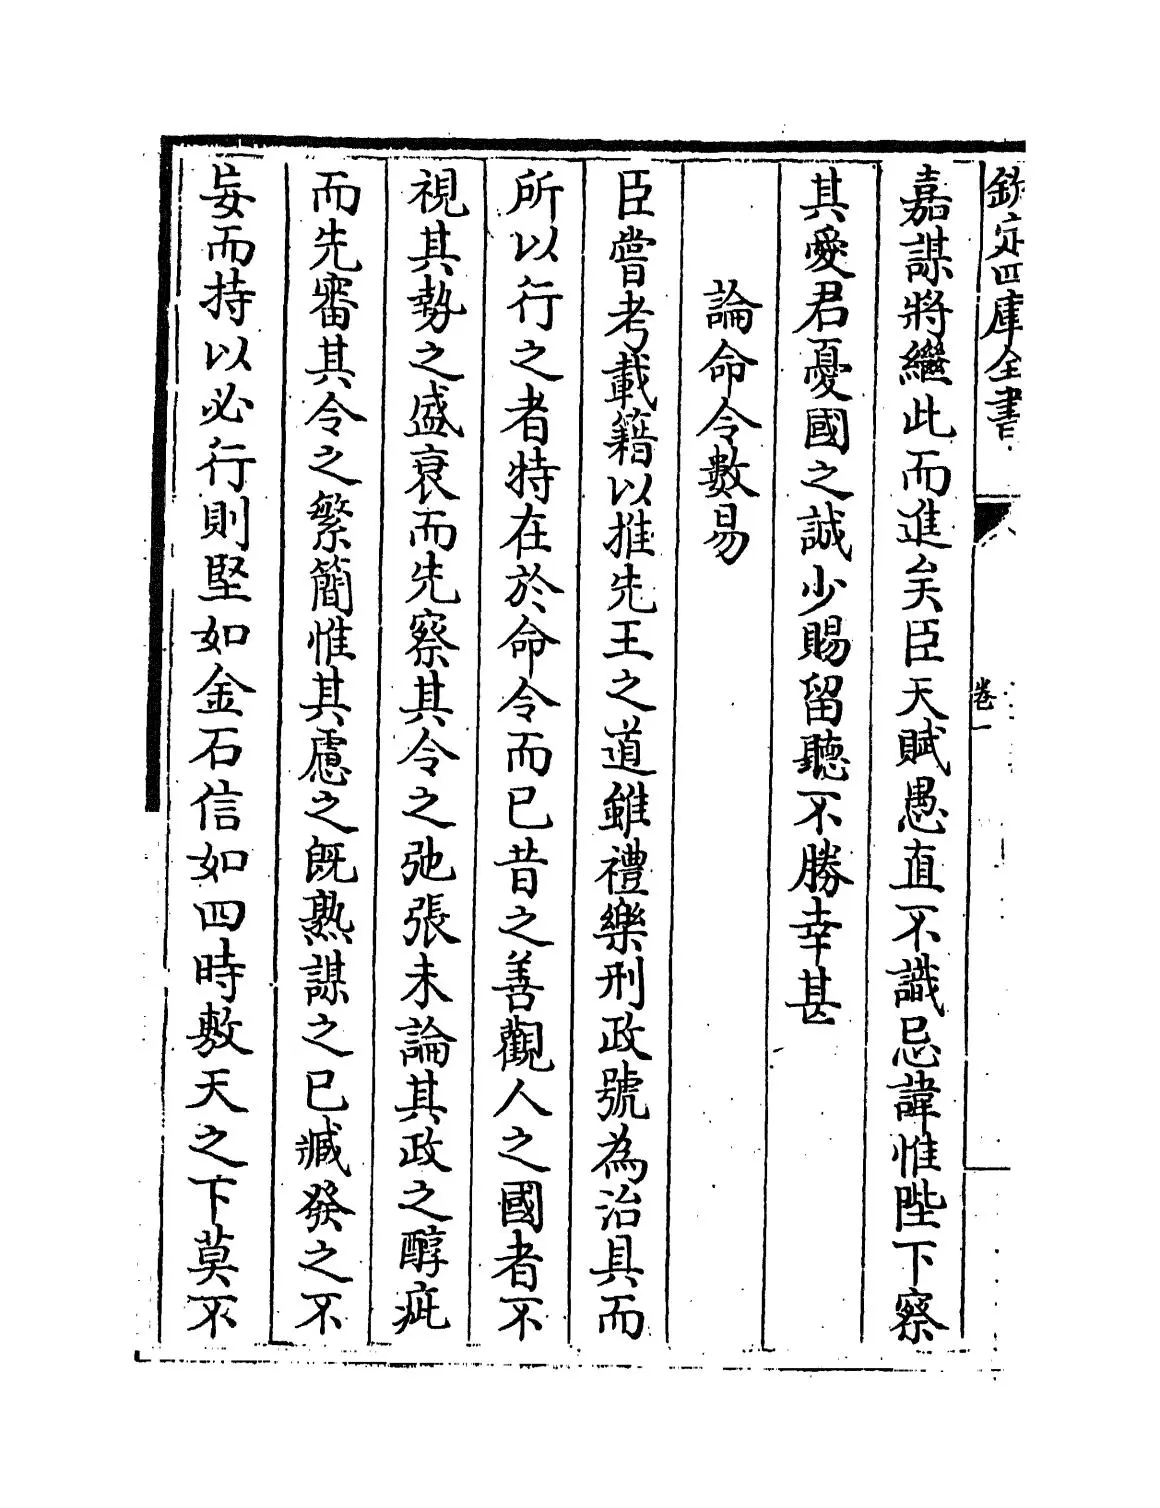 欽定四庫全書
卷一
嘉謀將繼此而進矣臣天賦愚直不識忌諱惟陛下察
其愛君憂國之誠少賜留聽不勝幸甚
論命令數易
臣嘗考載籍以推先王之道雖禮樂刑政號為治具而
所以行之者特在於命令而已昔之善觀人之國者不
視其勢之盛衰而先察其令之弛張未論其政之醇疵
而先審其令之繁簡惟其慮之既熟謀之已臧發之不
妄而持以必行則堅如金石信如四時敷天之下莫不